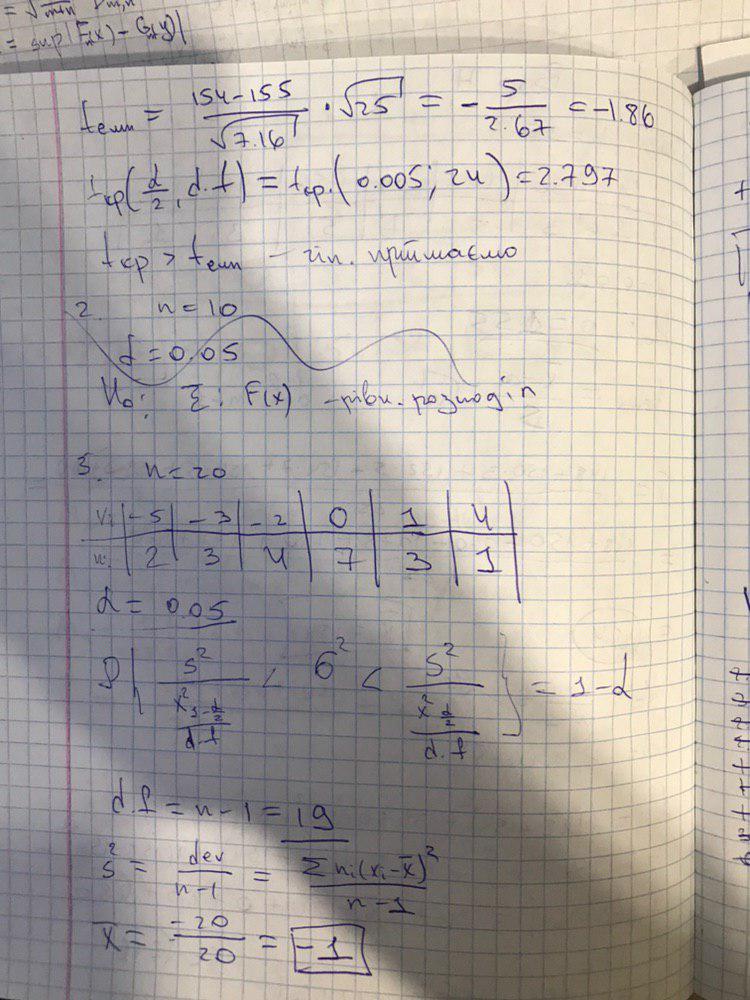 = √min
= sup|Fₙ(x) − Gₘ(y)|
t емп = (154-155)/√7.16 · √25 = − 5/2.67 = −1.86
t кр(α/2, d.f) = t кр.(0.005; 24) = 2.797
t кр > t емп − гіп. приймаємо
2. n = 10
α = 0.05
H₀: ξ: F(x) − рівн. розподіл
3. n = 20
Vi | −5 | −3 | −2 | 0 | 1 | 4
ni | 2 | 3 | 4 | 7 | 3 | 1
α = 0.05
P{ S²/(χ²_{1-α/2}/d.f) < σ² < S²/(χ²_{α/2}/d.f) } = 1-α
d.f = n-1 = 19
s² = dev/(n-1) = Σ ni(xi-x̄)²/(n-1)
x̄ = -20/20 = -1